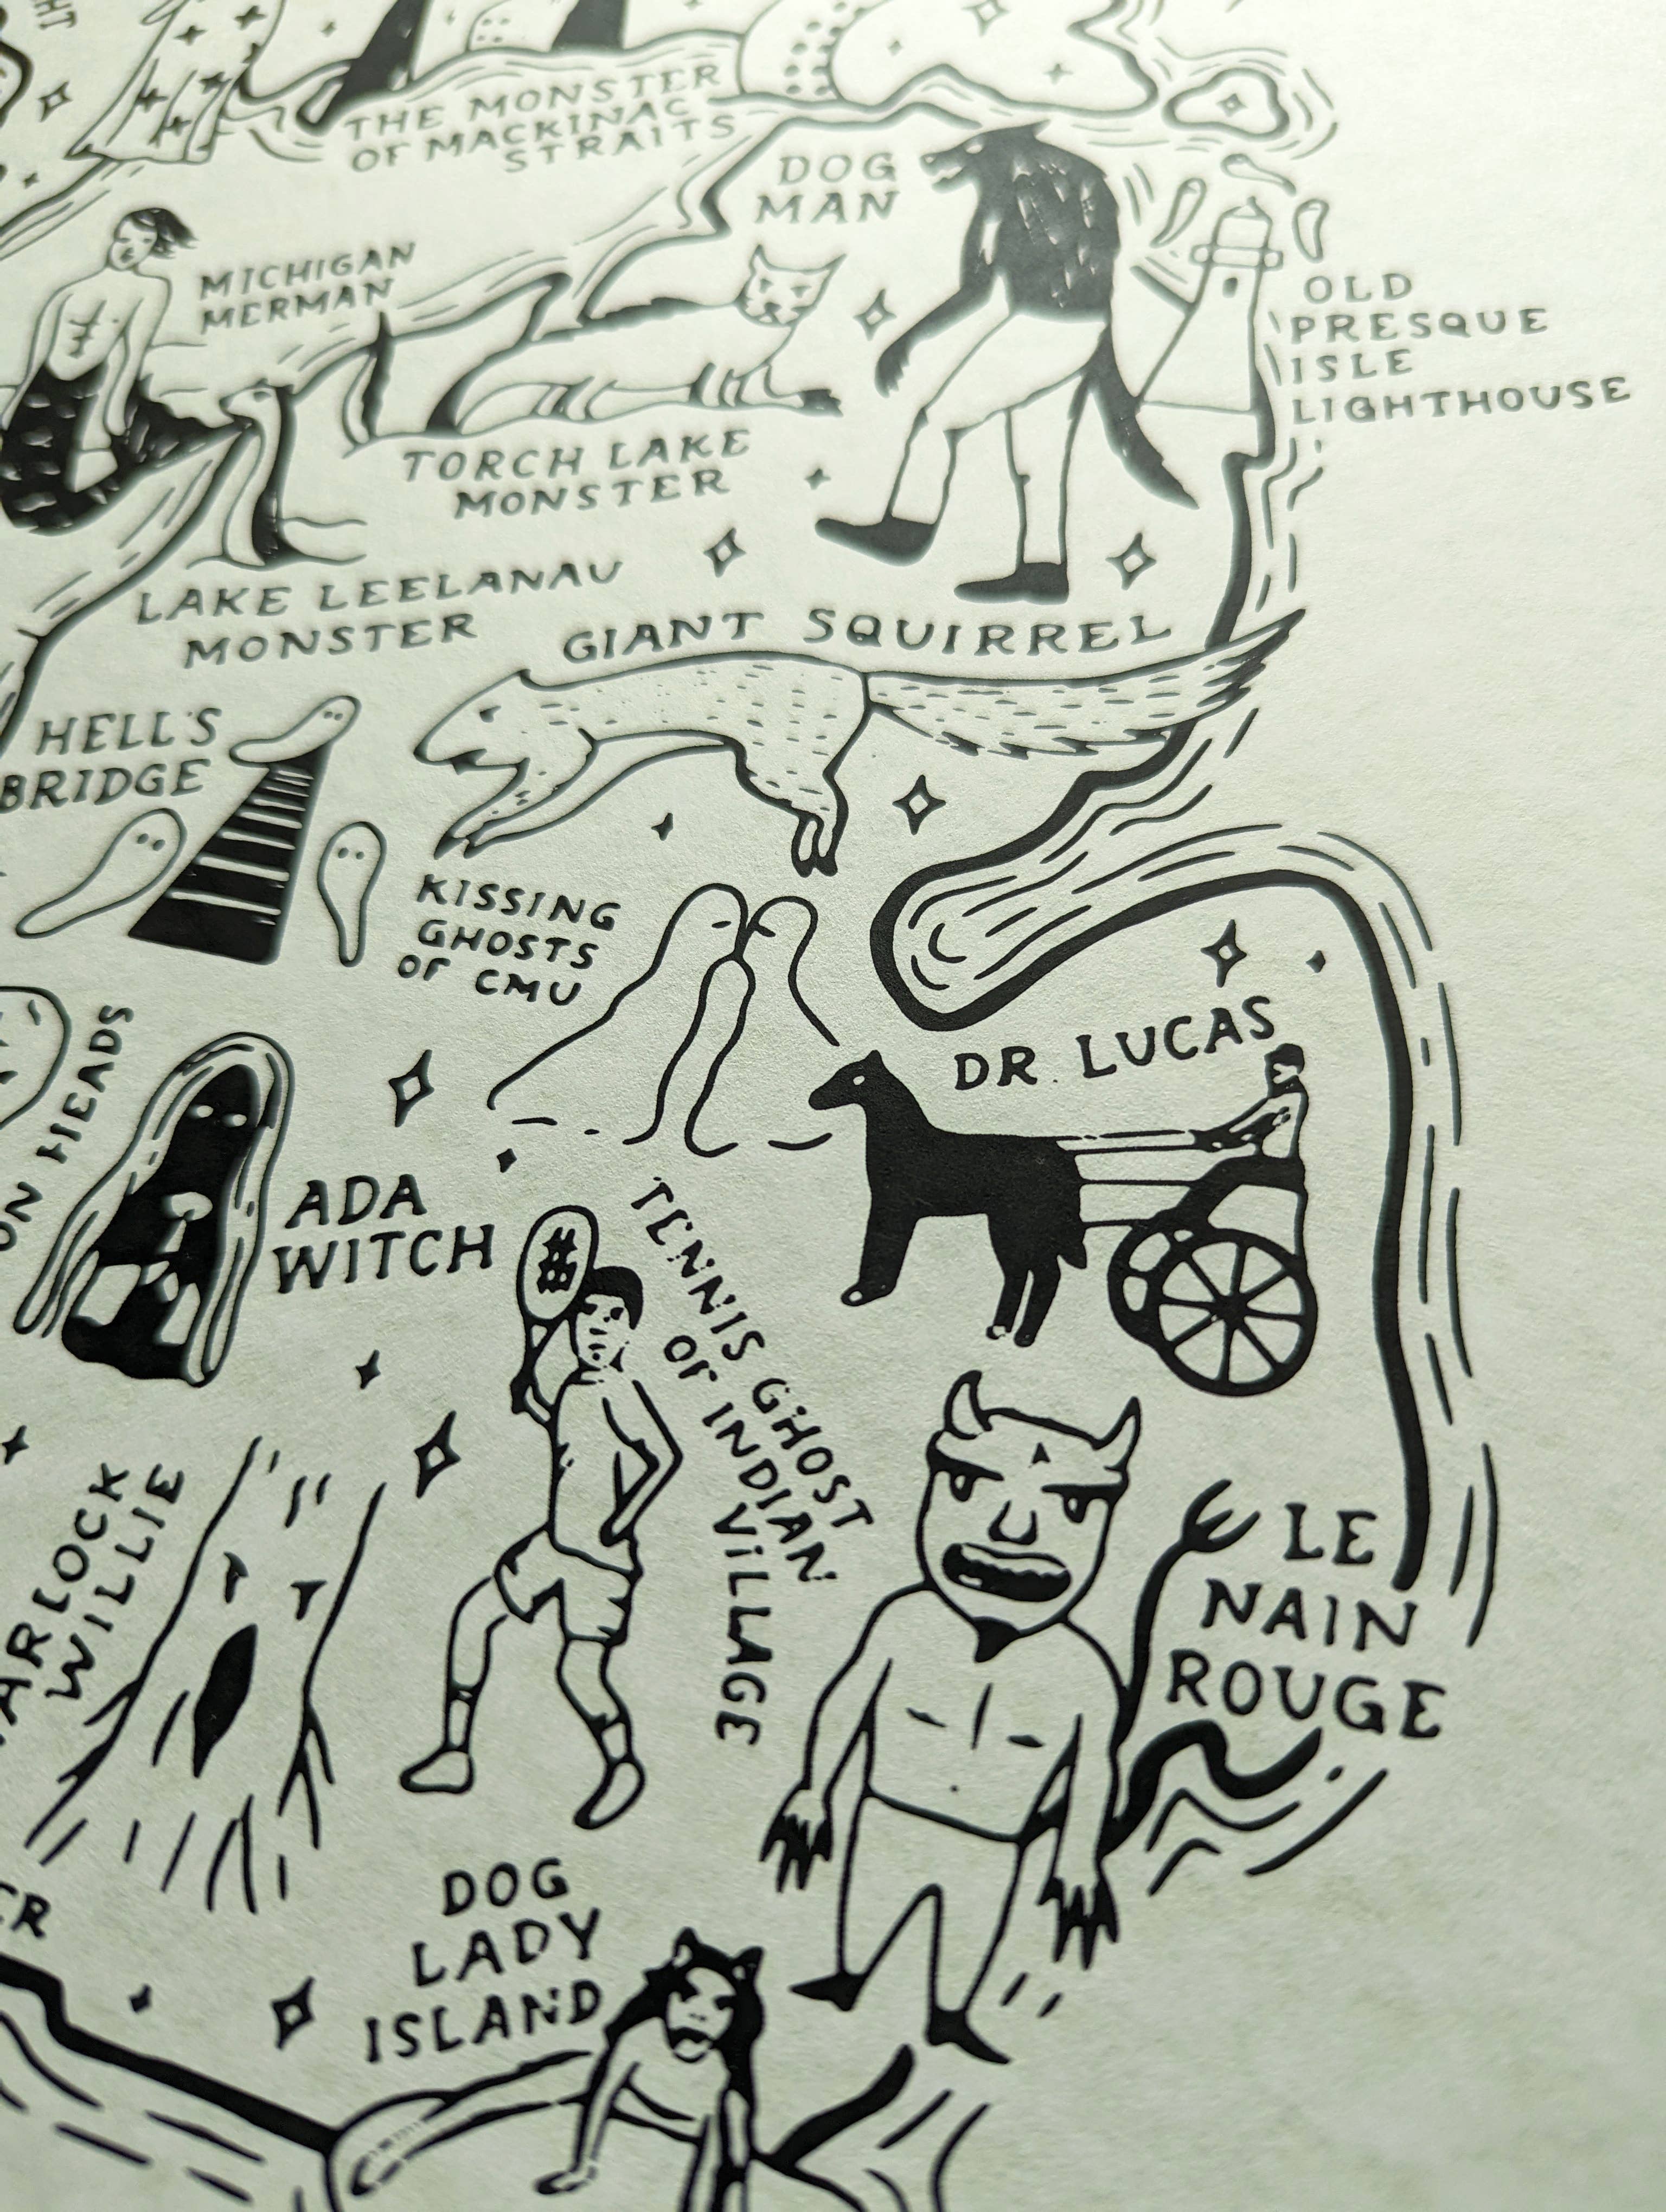 THE MONSTER
OF MACKINAC
STRAITS
DOG
MAN
MICHIGAN
MERMAN
OLD
PRESQUE
ISLE
LIGHTHOUSE
TORCH LAKE
MONSTER
LAKE LEELANAU
MONSTER
GIANT SQUIRREL
HELL'S
BRIDGE
KISSING
GHOSTS
OF CMU
HEADS
DR. LUCAS
ADA
WITCH
TENNIS GHOST
OF INDIAN
VILLAGE
WILLIE
LE
NAIN
ROUGE
DOG
LADY
ISLAND